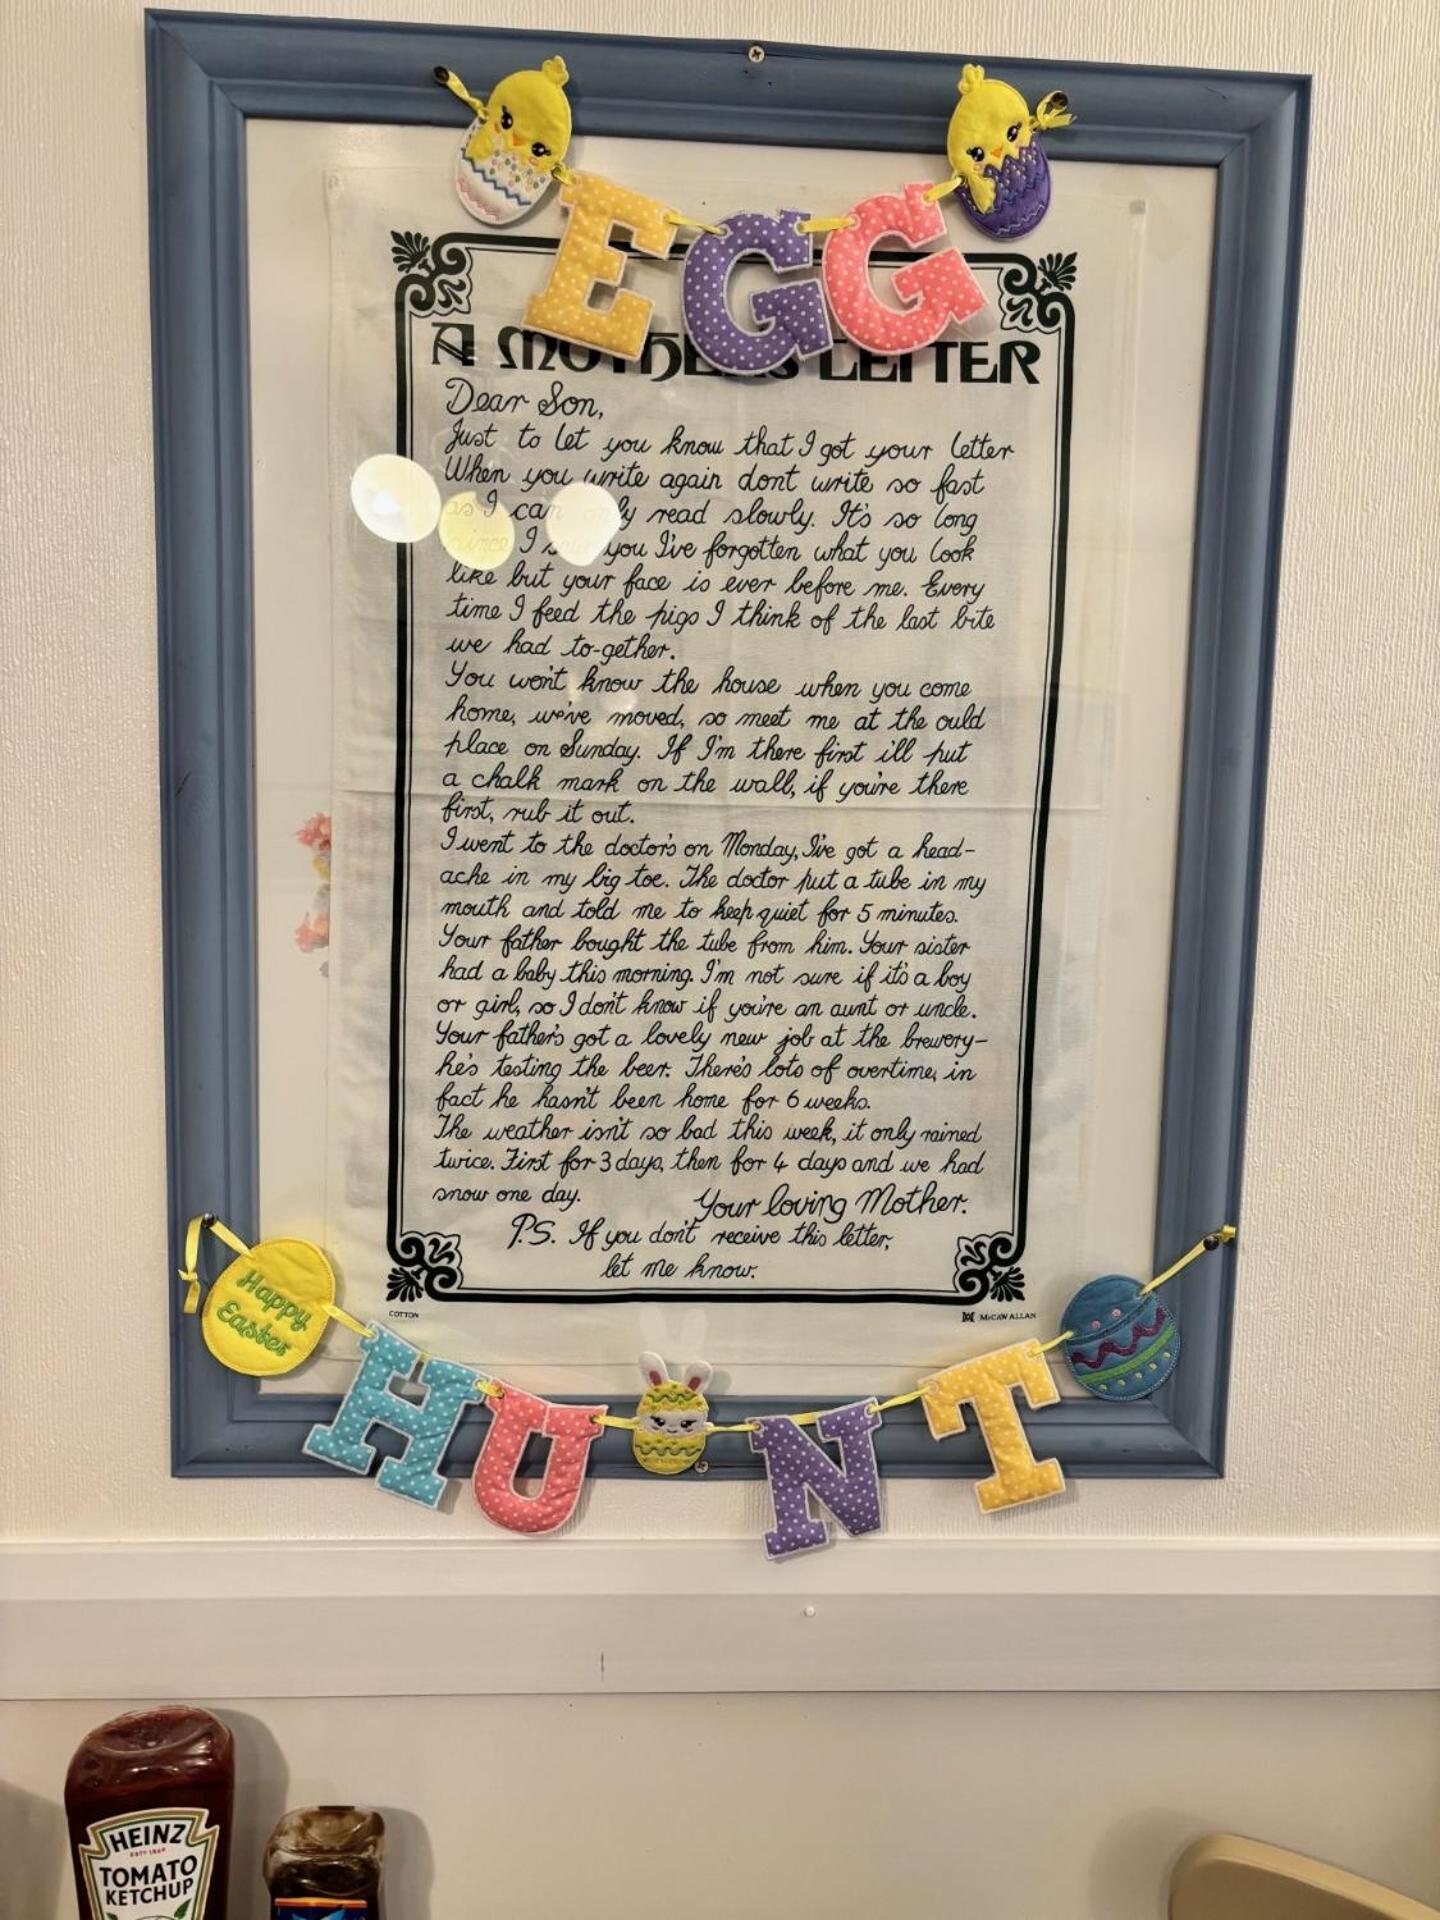 EGG
A MOTHERS LETTER
Dear Son,
Just to let you know that I got your letter
When you write again dont write so fast
as I can only read slowly. It's so long
since I saw you I've forgotten what you look
like but your face is ever before me. Every
time I feed the pigs I think of the last bite
we had to-gether.
You won't know the house when you come
home, we've moved, so meet me at the ould
place on Sunday. If I'm there first i'll put
a chalk mark on the wall, if you're there
first, rub it out.
I went to the doctor's on Monday, I've got a head-
ache in my big toe. The doctor put a tube in my
mouth and told me to keep quiet for 5 minutes.
Your father bought the tube from him. Your sister
had a baby this morning. I'm not sure if it's a boy
or girl, so I don't know if you're an aunt or uncle.
Your father's got a lovely new job at the brewery-
he's testing the beer. There's lots of overtime, in
fact he hasn't been home for 6 weeks.
The weather isn't so bad this week, it only rained
twice. First for 3 days, then for 4 days and we had
snow one day.
Your loving Mother.
P.S. If you don't receive this letter,
let me know.
COTTON
McCAW ALLAN
Happy
Easter
HUNT
HEINZ
ESTD 1869
TOMATO
KETCHUP